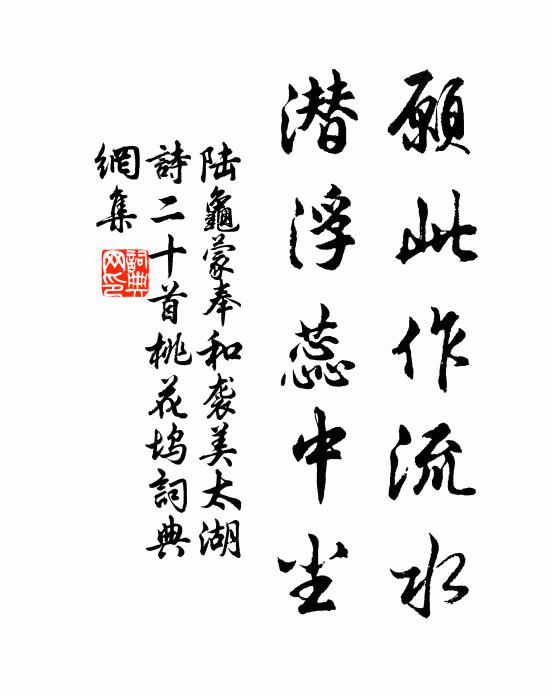 願此作流水
潜浮蕊中尘
陆龜蒙奉和袭美太湖
詩二十首桃花坞詞典
網集
詞典网印